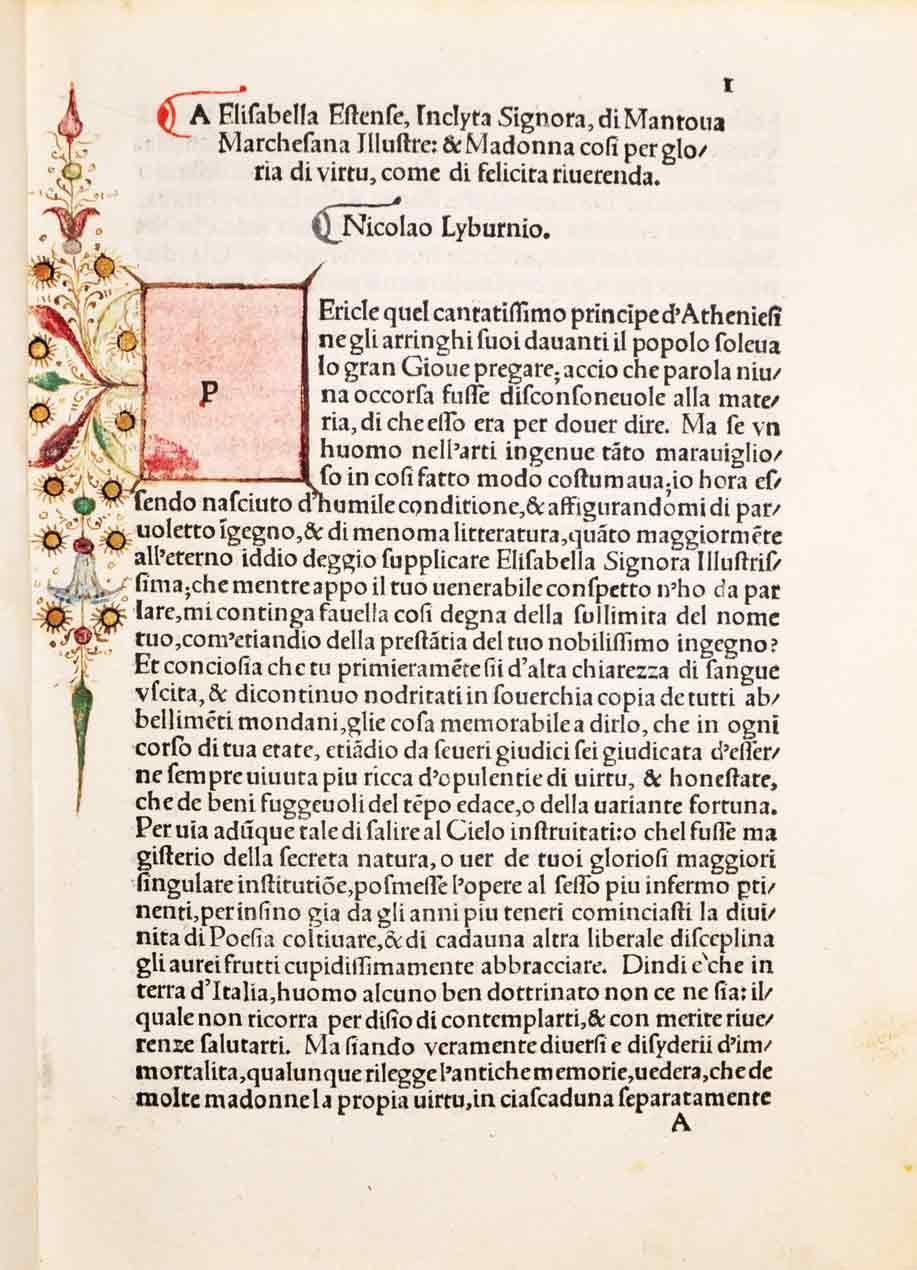 I
A Eliſabella Eſtenſe, Inclyta Signora, di Mantoua
Marcheſana Illuſtre: & Madonna coſi per glo/
ria di virtu, come di felicita riuerenda.
Nicolao Lyburnio.
P
Ericle quel cantatiſſimo principe d'Athenieſi
ne gli arringhi ſuoi dauanti il popolo ſoleua
lo gran Gioue pregare; accio che parola niu/
na occorſa fuſſe diſconſoneuole alla mate/
ria, di che eſſo era per douer dire. Ma ſe vn
huomo nell'arti ingenue tãto marauiglio/
ſo in coſi fatto modo coſtumaua; io hora eſ/
ſendo naſciuto d'humile conditione, & affigurandomi di par/
uoletto ĩgegno, & di menoma litteratura, quãto maggiormẽte
all'eterno iddio deggio ſupplicare Eliſabella Signora Illuſtriſ/
ſima; che mentre appo il tuo uenerabile conſpetto n'ho da par
lare, mi continga fauella coſi degna della ſullimita del nome
tuo, com'etiandio della preſtãtia del tuo nobiliſſimo ingegno?
Et concioſia che tu primieramẽte ſii d'alta chiarezza di ſangue
vſcita, & dicontinuo nodritati in ſouerchia copia de tutti ab/
bellimẽti mondani, glie coſa memorabile a dirlo, che in ogni
corſo di tua etate, etiãdio da ſeueri giudici ſei giudicata d'eſſer/
ne ſempre uiuuta piu ricca d'opulentie di uirtu, & honeſtate,
che de beni fuggeuoli del tẽpo edace, o della uariante fortuna.
Per uia adũque tale di ſalire al Cielo inſtruitati: o chel fuſſe ma
giſterio della ſecreta natura, o uer de tuoi glorioſi maggiori
ſingulare inſtitutiõe, poſmeſſe l'opere al ſeſſo piu infermo ꝑti/
nenti, per inſino gia da gli anni piu teneri cominciaſti la diui/
nita di Poeſia coltiuare, & di cadauna altra liberale diſceplina
gli aurei frutti cupidiſſimamente abbracciare. Dindi e'che in
terra d'Italia, huomo alcuno ben dottrinato non ce ne ſia: il/
quale non ricorra per diſio di contemplarti, & con merite riue/
renze ſalutarti. Ma ſiando veramente diuerſi e diſyderii d'im/
mortalita, qualunque rilegge l'antiche memorie, uedera, che de
molte madonne la propia uirtu, in ciaſcaduna ſeparatamente
A